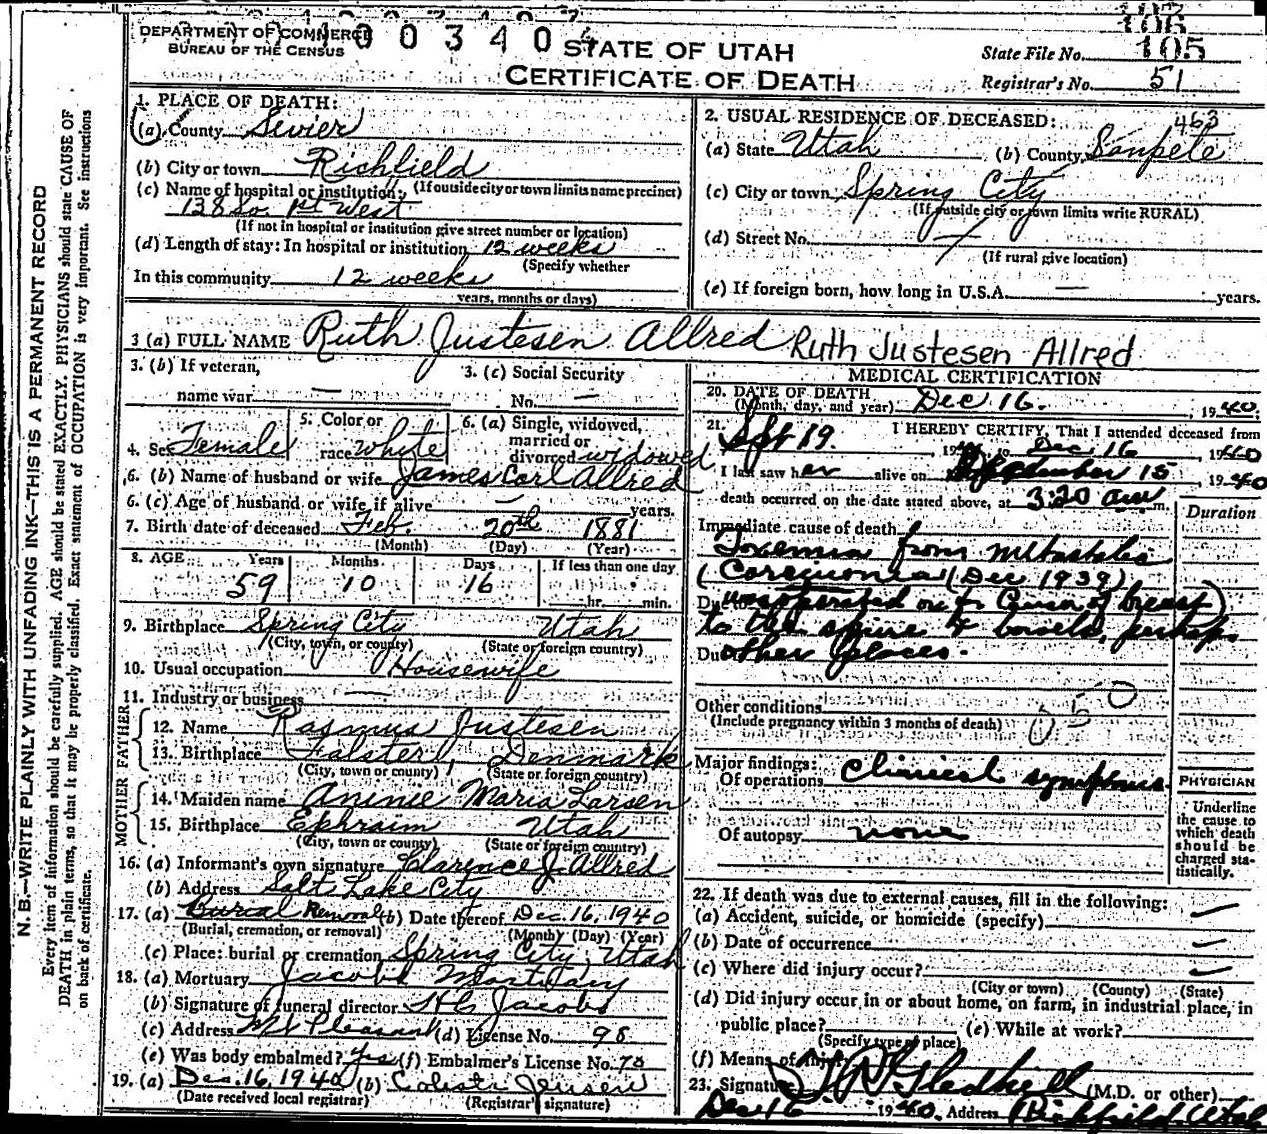 DEPARTMENT OF COMMERCE
BUREAU OF THE CENSUS
4003404
STATE OF UTAH
CERTIFICATE OF DEATH
106
State File No. 105
Registrar's No. 51
N. B.—WRITE PLAINLY WITH UNFADING INK—THIS IS A PERMANENT RECORD
Every item of information should be carefully supplied. AGE should be stated EXACTLY. PHYSICIANS should state CAUSE OF
DEATH in plain terms, so that it may be properly classified. Exact statement of OCCUPATION is very important. See instructions
on back of certificate.
1. PLACE OF DEATH:
(a) County Sevier
(b) City or town Richfield
(c) Name of hospital or institution: (If outside city or town limits name precinct)
138 So. 1st West
(If not in hospital or institution give street number or location)
(d) Length of stay: In hospital or institution 12 weeks
(Specify whether
In this community 12 weeks
years, months or days)
2. USUAL RESIDENCE OF DECEASED: 463
(a) State Utah (b) County Sanpete
(c) City or town Spring City
(If outside city or town limits write RURAL)
(d) Street No. —
(If rural give location)
(e) If foreign born, how long in U.S.A. — years.
3 (a) FULL NAME Ruth Justesen Allred Ruth Justesen Allred
3. (b) If veteran,
name war —
3. (c) Social Security
No. —
4. Sex Female
5. Color or
race White
6. (a) Single, widowed,
married or
divorced widowed
6. (b) Name of husband or wife James Carl Allred
6. (c) Age of husband or wife if alive — years.
7. Birth date of deceased Feb. 20th 1881
(Month) (Day) (Year)
8. AGE Years Months Days If less than one day
59 10 16 hr. min.
9. Birthplace Spring City Utah
(City, town, or county) (State or foreign country)
10. Usual occupation Housewife
11. Industry or business —
FATHER
12. Name Rasmus Justesen
13. Birthplace Falster, Denmark
(City, town or county) (State or foreign country)
MOTHER
14. Maiden name Aninie Maria Larsen
15. Birthplace Ephraim Utah
(City, town or county) (State or foreign country)
16. (a) Informant's own signature Clarence J. Allred
(b) Address Salt Lake City
17. (a) Burial Removal (b) Date thereof Dec. 16, 1940
(Burial, cremation, or removal) (Month) (Day) (Year)
(c) Place: burial or cremation Spring City, Utah
18. (a) Mortuary Jacobs Mortuary
(b) Signature of funeral director H C Jacobs
(c) Address Mt Pleasant (d) License No. 98
(e) Was body embalmed? Yes (f) Embalmer's License No. 78
19. (a) Dec. 16, 1940 (b) Jensen
(Date received local registrar) (Registrar's signature)
MEDICAL CERTIFICATION
20. DATE OF DEATH
(Month, day, and year) Dec 16. , 1940
21. I HEREBY CERTIFY, That I attended deceased from
Sept 19. , 19 to Dec 16 , 1940
I last saw her alive on December 15 , 1940
death occurred on the date stated above, at 3:20 am m.
Duration
Immediate cause of death
Toxemia from metastatic
(Carcinoma (Dec 1939)
Due to was operated on for Cancer of breast)
to the spine & bowels, perhaps
Due other places.
Other conditions
(Include pregnancy within 3 months of death)
050
Major findings:
Of operations Clinical symptoms
Of autopsy none
PHYSICIAN
Underline
the cause to
which death
should be
charged sta-
tistically.
22. If death was due to external causes, fill in the following:
(a) Accident, suicide, or homicide (specify) —
(b) Date of occurrence —
(c) Where did injury occur? —
(City or town) (County) (State)
(d) Did injury occur in or about home, on farm, in industrial place, in
public place? (e) While at work?
(Specify type of place)
(f) Means of injury
23. Signature Gledhill (M.D. or other)
Dec 16 1940. Address Richfield Utah